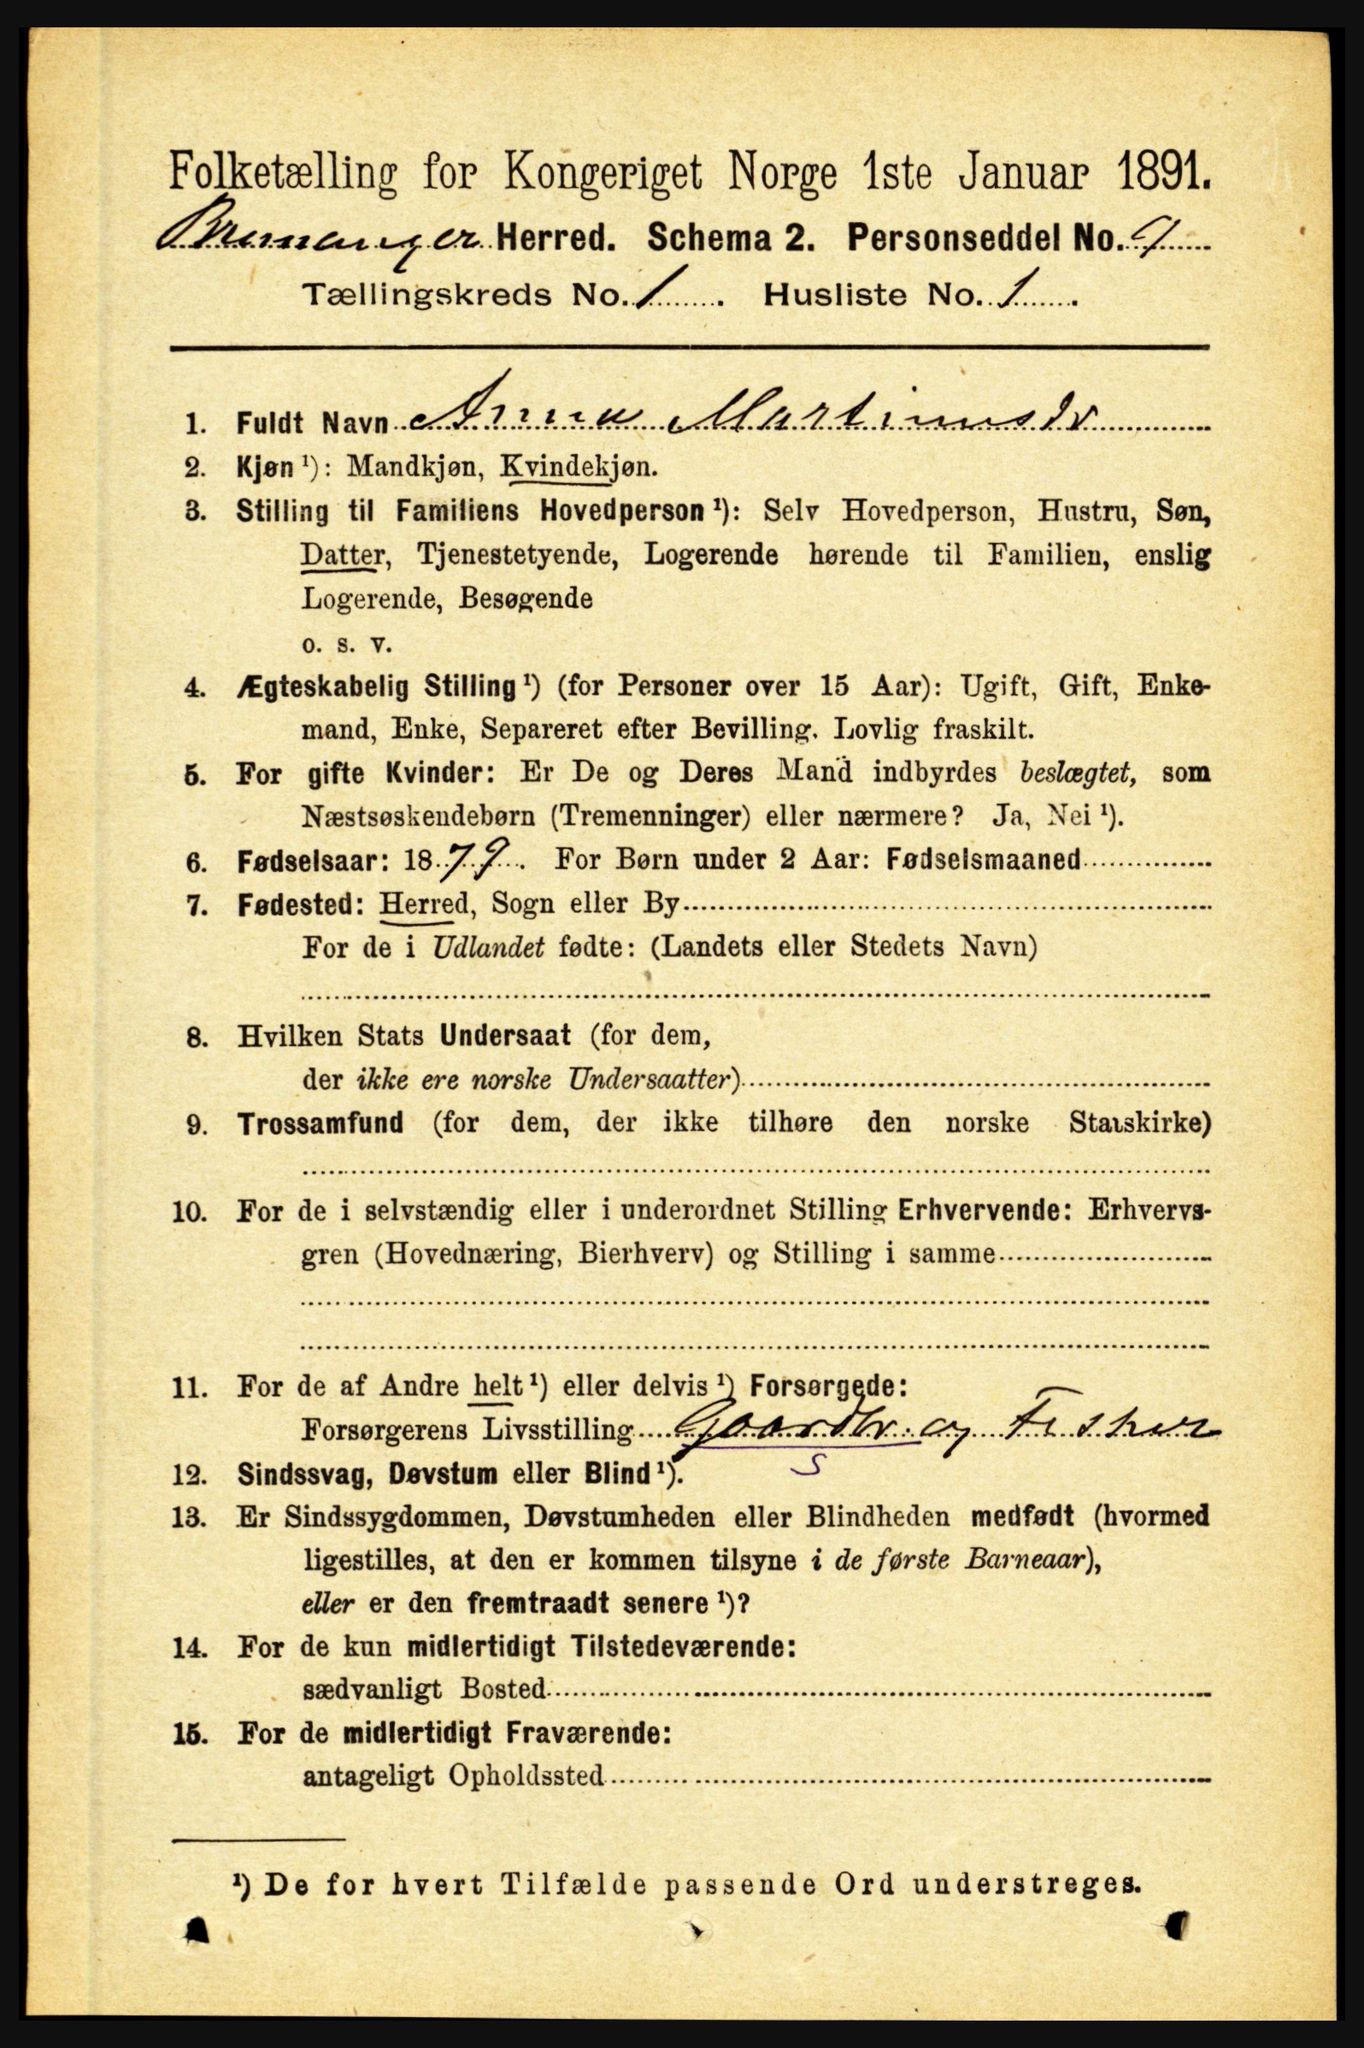 Folketælling for Kongeriget Norge 1ste Januar 1891.
Bremanger Herred. Schema 2. Personseddel No. 9
Tællingskreds No. 1. Husliste No. 1.
1. Fuldt Navn Anna Martinusdr
2. Kjøn ¹): Mandkjøn, Kvindekjøn.
3. Stilling til Familiens Hovedperson ¹): Selv Hovedperson, Hustru, Søn,
Datter, Tjenestetyende, Logerende hørende til Familien, enslig
Logerende, Besøgende
o. s. v.
4. Ægteskabelig Stilling ¹) (for Personer over 15 Aar): Ugift, Gift, Enke-
mand, Enke, Separeret efter Bevilling. Lovlig fraskilt.
5. For gifte Kvinder: Er De og Deres Mand indbyrdes beslægtet, som
Næstsøskendebørn (Tremenninger) eller nærmere? Ja, Nei ¹).
6. Fødselsaar: 1879. For Børn under 2 Aar: Fødselsmaaned
7. Fødested: Herred, Sogn eller By
For de i Udlandet fødte: (Landets eller Stedets Navn)
8. Hvilken Stats Undersaat (for dem,
der ikke ere norske Undersaatter)
9. Trossamfund (for dem, der ikke tilhøre den norske Statskirke)
10. For de i selvstændig eller i underordnet Stilling Erhvervende: Erhvervs-
gren (Hovednæring, Bierhverv) og Stilling i samme
11. For de af Andre helt ¹) eller delvis ¹) Forsørgede:
Forsørgerens Livsstilling Gaardbr. og Fisker
S
12. Sindssvag, Døvstum eller Blind ¹).
13. Er Sindssygdommen, Døvstumheden eller Blindheden medfødt (hvormed
ligestilles, at den er kommen tilsyne i de første Barneaar),
eller er den fremtraadt senere ¹)?
14. For de kun midlertidigt Tilstedeværende:
sædvanligt Bosted
15. For de midlertidigt Fraværende:
antageligt Opholdssted
¹) De for hvert Tilfælde passende Ord understreges.